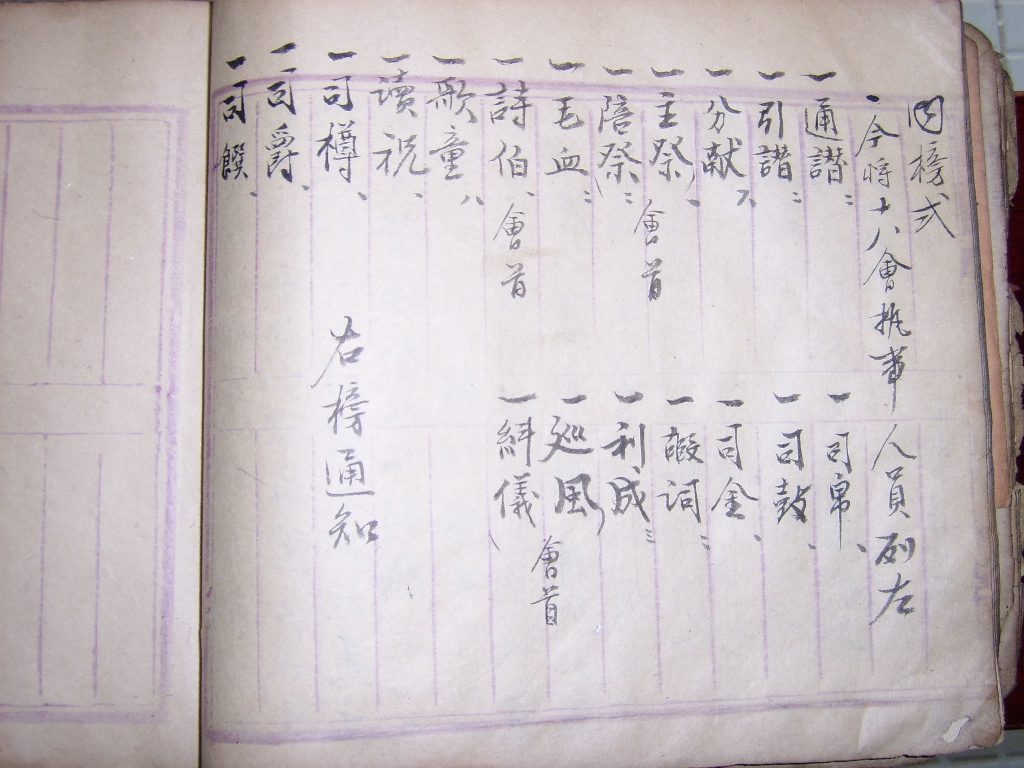 因榜式
一今將十八會执事人員列左
一通譛：
一引譛：
一分献六
一主祭、會首
一陪祭：
一毛血：
一詩伯、會首
一歌童八
一讀祝、
一司樽、
一司爵、
一司饌、
一司帛、
一司鼓、
一司金、
一嘏詞：
一利成三
一巡風
會首
一糾儀
右榜通知